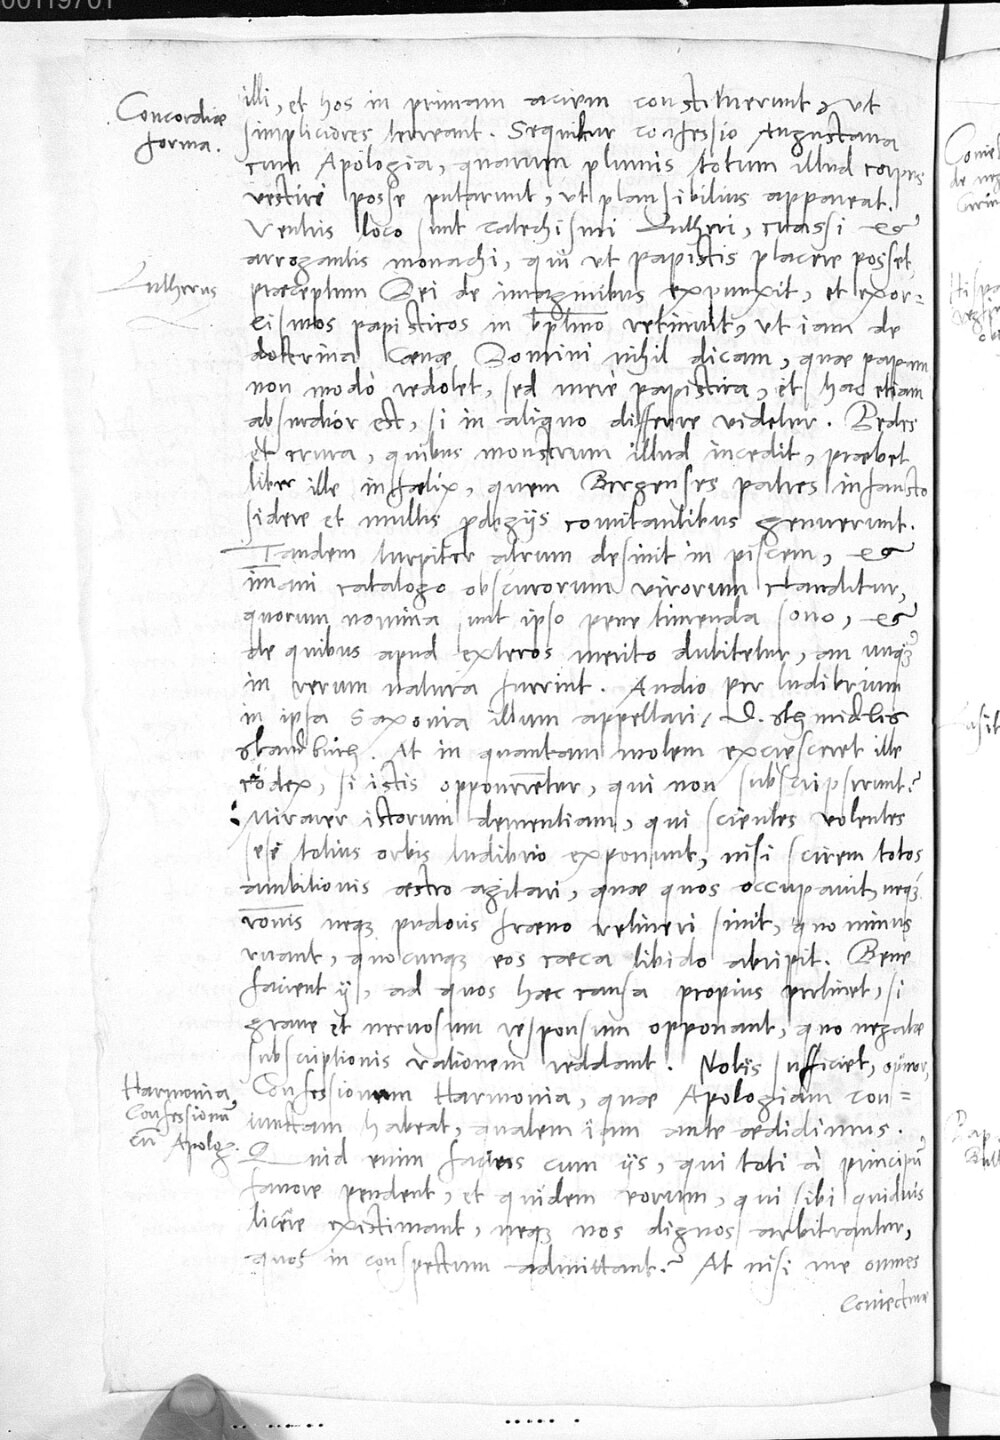 00119701
Concordiæ
forma.
illi, et hos in primam aciem constituerunt, ut
simpliciores terreant. Sequitur confessio Augustana
cum Apologia, quarum plumis totum illud corpus
vestiri posse putarunt, ut plausibilius appareat.
Ventris loco sunt catechismi Lutheri, crassi et
arrogantis monachi, qui ut papistis placere posset,
Lutherus
præceptum Dei de imaginibus expunxit, et exor=
cismos papisticos in bptmo retinuit, ut iam de
doctrina Cœnæ Domini nihil dicam, quæ papam
non modò redolet, sed merè papistica, et hac etiam
absurdior est, si in aliquo differre videtur. Pedes
et crura, quibus monstrum illud incedit, præbet
liber ille infælix, quem Bergenses patres infausto
sidere et multis pdegijs comitantibus genuerunt.
Tandem turpiter atrum desinit in piscem, et
imani catalogo obscurorum virorum clauditur,
quorum nomina sunt ipso pene timenda sono, et
de quibus apud exteros merito dubitetur, an unq3
in rerum natura fuerint. Audio per ludibrium
in ipsa Saxonia illum appellari, D. Schmidlis
standbuch. At in quantam molem excresceret ille
codex, si istis opponerentur, qui non subscripserunt?
Mirarer istorum dementiam, qui scientes volentes
sese totius orbis ludibrio exponunt, nisi scirem totos
ambitionis œstro agitari, quæ quos occupavit, neq3
ronis neq3 pudoris fræno retineri sinit, quo minus
ruant, quocunq3 eos cæca libido abripit. Bene
facient ij, ad quos hæc causa propius pertinet, si
grave et nervosum responsum opponant, quo negatæ
subscriptionis rationem reddant. Nobis sufficiet, opinor,
Harmonia
Confessionū
cū Apolog.
Confessionum Harmonia, quæ Apologiam con=
iunctam habeat, qualem iam ante ædidimus.
Quid enim facies cum ijs, qui toti à principū
favore pendent, et quidem eorum, qui sibi quidvis
licere existimant, neq3 nos dignos arbitrantur,
quos in conspectum admittant? At nisi me omnes
Coniecturæ